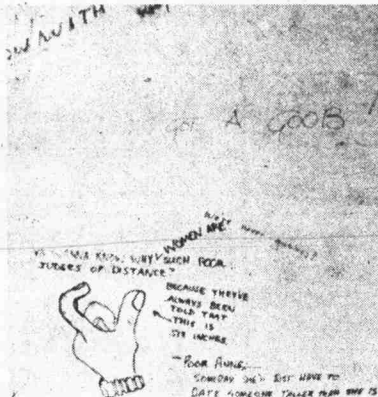 WITH
GOT A GOOD
WOMEN ARE
WANNA KNOW WHY SUCH POOR
JUDGES OF DISTANCE?
BECAUSE THEY'VE
ALWAYS BEEN
TOLD THAT
THIS IS
SIX INCHES.
POOR ANNE,
SOMEDAY SHE'LL JUST HAVE TO
DATE SOMEONE TALLER THAN SHE IS